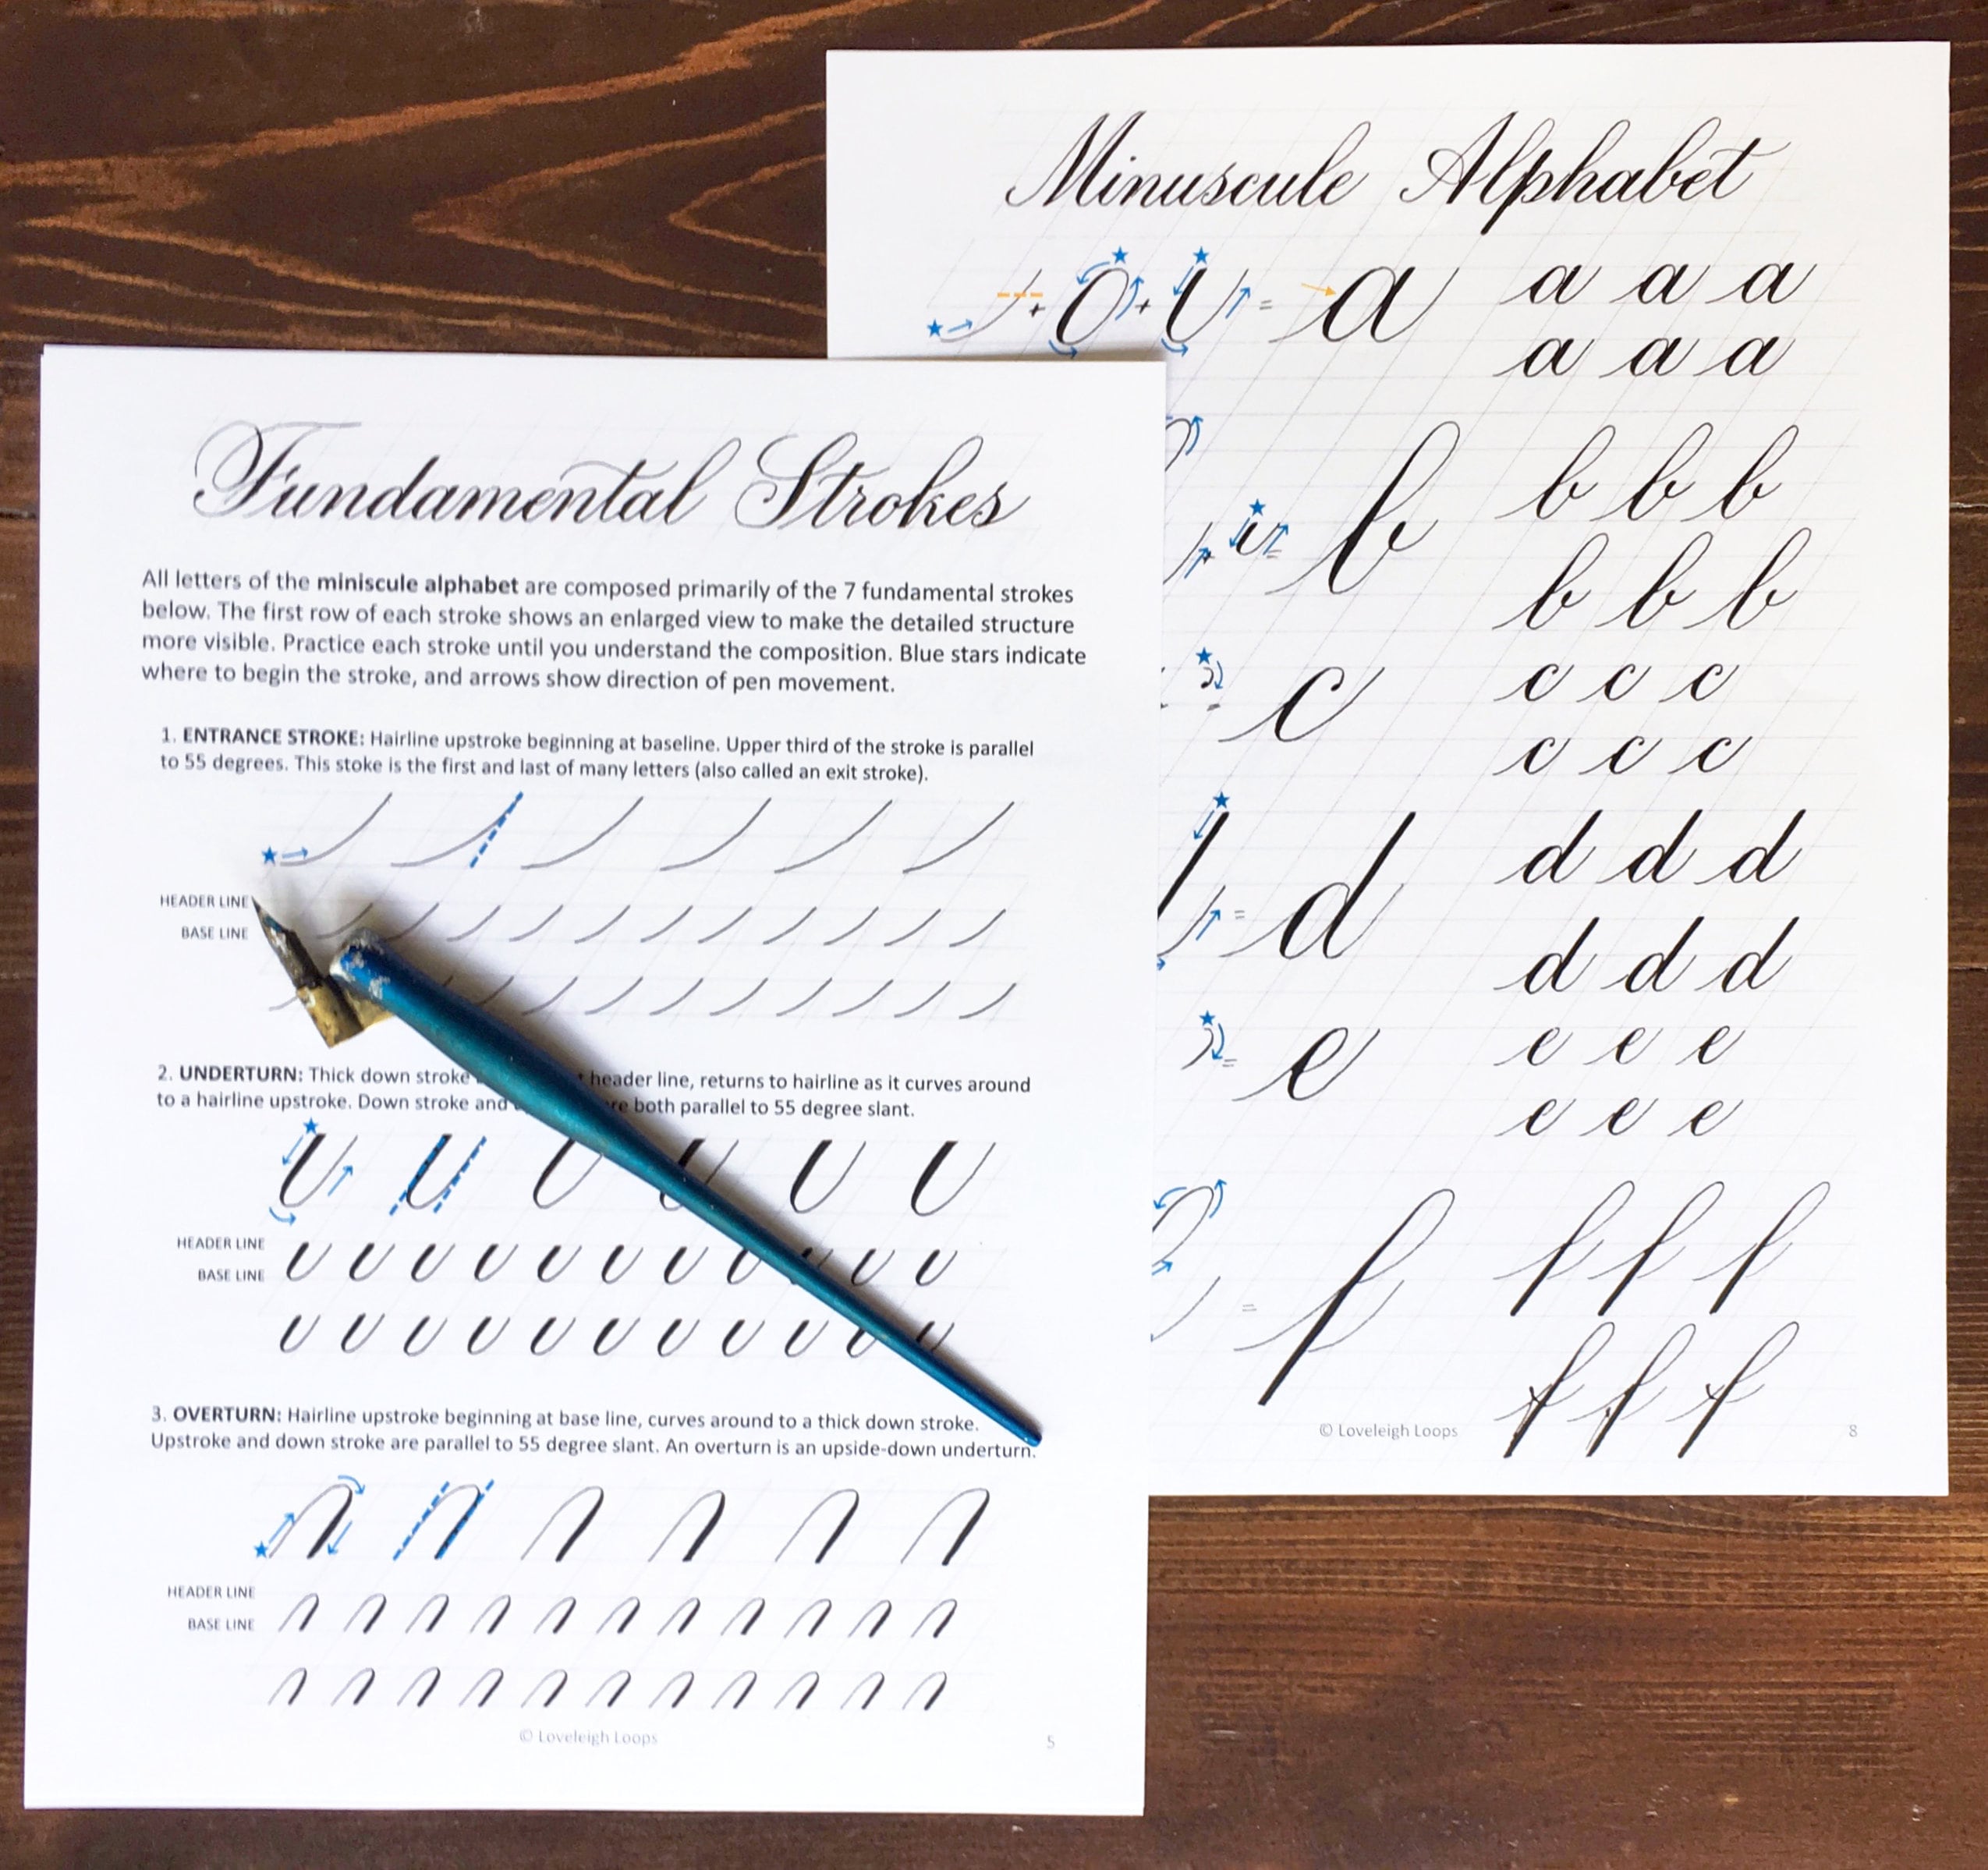 Minuscule Alphabet
+ + = a a a a
a a a
= b b b b
b b b
c c c c
c c c
= d d d d
d d d
= e e e e
e e e
= f f f f
f f f
© Loveleigh Loops 8
Fundamental Strokes
All letters of the miniscule alphabet are composed primarily of the 7 fundamental strokes
below. The first row of each stroke shows an enlarged view to make the detailed structure
more visible. Practice each stroke until you understand the composition. Blue stars indicate
where to begin the stroke, and arrows show direction of pen movement.
1. ENTRANCE STROKE: Hairline upstroke beginning at baseline. Upper third of the stroke is parallel
to 55 degrees. This stoke is the first and last of many letters (also called an exit stroke).
HEADER LINE
BASE LINE
2. UNDERTURN: Thick down stroke header line, returns to hairline as it curves around
to a hairline upstroke. Down stroke and both parallel to 55 degree slant.
HEADER LINE
BASE LINE
3. OVERTURN: Hairline upstroke beginning at base line, curves around to a thick down stroke.
Upstroke and down stroke are parallel to 55 degree slant. An overturn is an upside-down underturn.
HEADER LINE
BASE LINE
© Loveleigh Loops 5